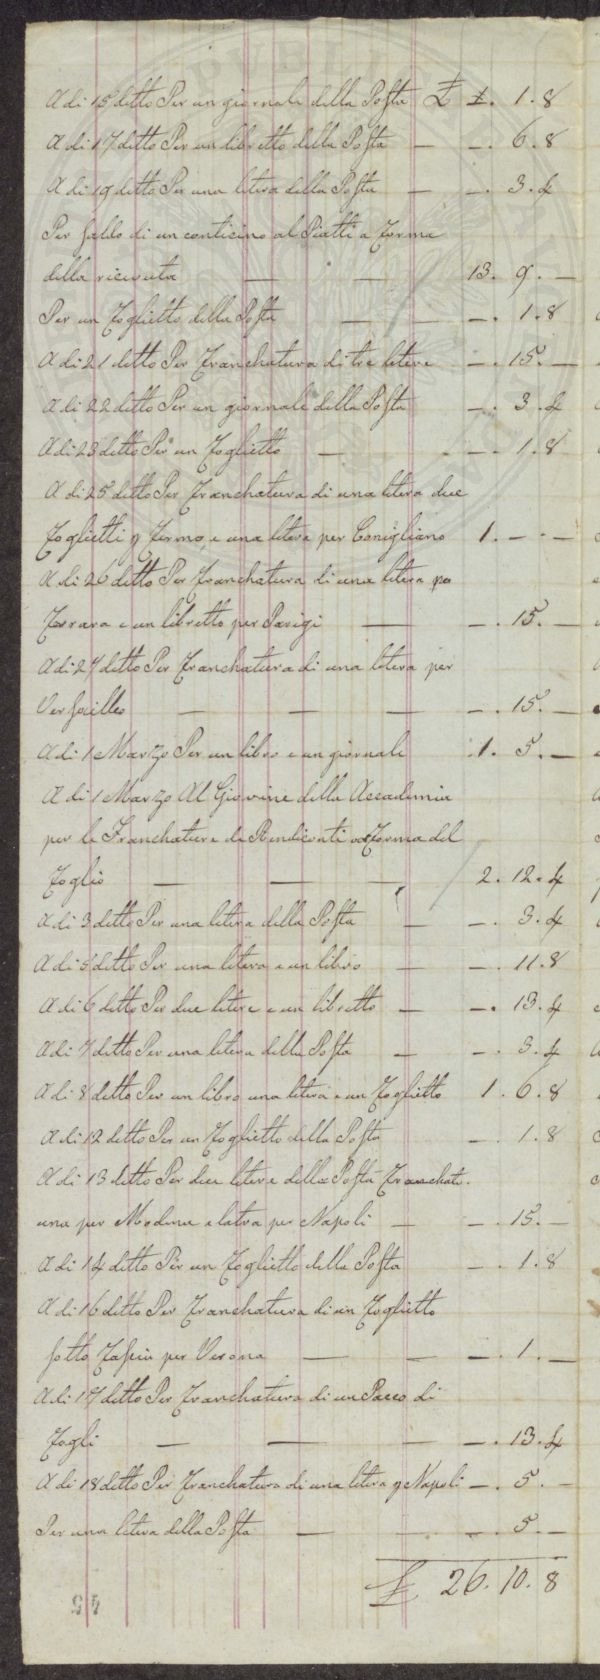 A di 15 ditto Per un giornale della Posta £ -. 1.8
A di 17 ditto Per un libretto della Posta — -. 6.8
A di 19 ditto Per una litera della Posta — -. 3.4
Per saldo di un conticino al Piatti a forma
della ricevuta — — 13. 9. —
Per un foglietto della Posta — -. 1.8
A di 21 ditto Per franchatura di tre litere -. 15. —
A di 22 ditto Per un giornale della Posta -. 3.4
A di 23 ditto Per un foglietto — -. 1.8
A di 25 ditto Per franchatura di una litera due
foglietti p fermo e una litera per Conigliano 1. - . -
A di 26 ditto Per franchatura di una litera pe
ferrara e un libretto per Parigi — -. 15. —
A di 27 ditto Per franchatura di una litera per
Versaillo — — — -. 15. —
A di 1 Marzo Per un libro e un giornale 1. 5. —
A di 1 Marzo Al Giovine della Accademia
per le Franchature de Rendiconti a forma del
foglio — — — 2. 12. 4
A di 3 ditto Per una litera della Posta — -. 3.4
A di 5 ditto Per una litera e un libro — -. 11.8
A di 6 ditto Per due litere e un libretto — -. 13.4
A di 7 ditto Per una litera della Posta — -. 3.4
A di 8 ditto Per un libro una litera e un foglietto 1. 6.8
A di 12 ditto Per un foglietto della Posta -. 1.8
A di 13 ditto Per due litere della Posta franchate
una per Modena e latra per Napoli — -. 15. —
A di 14 ditto Per un foglietto della Posta -. 1.8
A di 16 ditto Per franchatura di un foglietto
sotto fascia per Verona — — -. 1. —
A di 17 ditto Per franchatura di un Pacco di
fogli — — — -. 13.4
A di 18 ditto Per franchatura di una litera p Napoli -. 5. —
Per una litera della Posta — — -. 5. —
£ 26. 10. 8